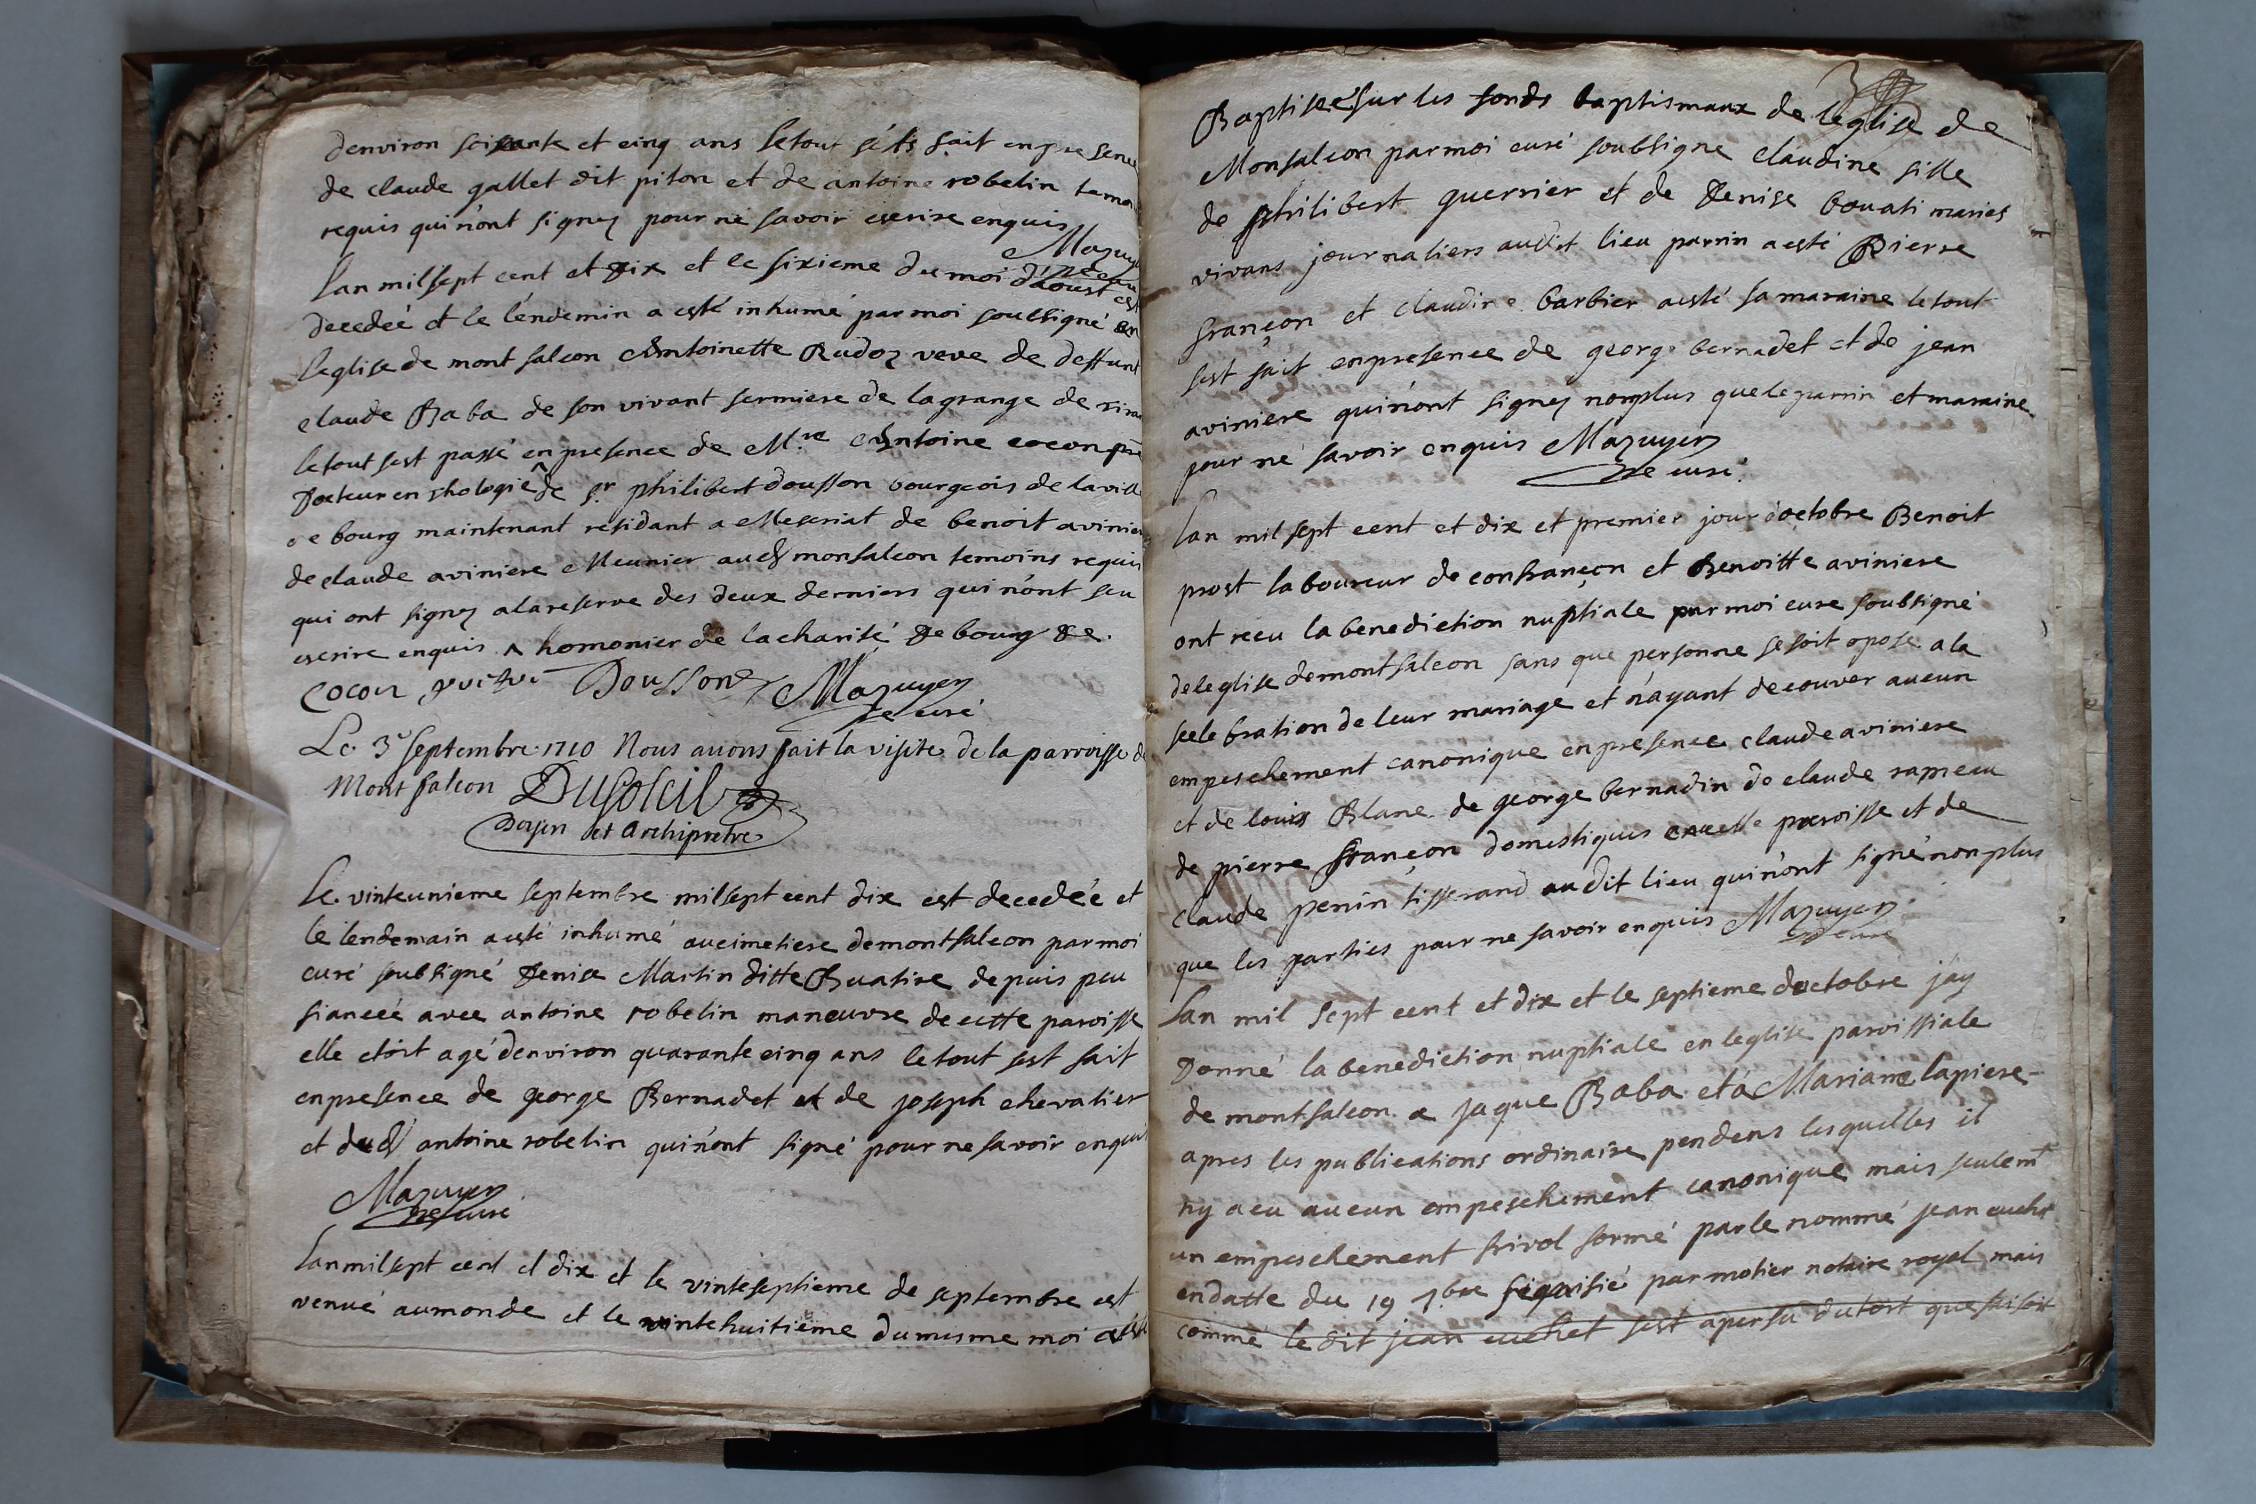 denviron soixante et cinq ans le tout s'est fait en presence
de claude gallet dit piton et de antoine robelin temoi
requis qui n'ont signez pour ne savoir escrire enquis
Mazuyer
Lan mil sept cent et dix et le sixieme du moi d'aoust est
decedeé et le lendemin a esté inhumé par moi soubsigné en
leglise de montfalcon Antoinette Rudoz veve de deffunt
claude Baba de son vivant fermiere de la grange de
le tout sest passé en presence de Mre Antoine cocon pre
Docteur en thologie ^ de sr philibert dousson bourgeois de la ville
de bourg maintenant residant a Meseriat de benoit aviniere
de claude aviniere Meunier aud monfalcon temoins requis
qui ont signez a la reserve des deux derniers qui n'ont seu
escrire enquis ^ homonier de la charité de bourg de.
Cocon Dousson Mazuyer
curé
Le 3e septembre 1710 Nous auons fait la visite de la parroisse de
Montfalcon Dusoleil
Doyen et Archipretre
Le vinteunieme septembre mil sept cent dix est decedeé et
le lendemain a esté inhumé au cimetiere de montfalcon par moi
curé soubsigné Denise Martin ditte Buatire depuis peu
fianceé avec antoine robelin maneuvre de cette paroisse
elle etoit agé denviron quarante cinq ans le tout sest fait
en presence de george Bernadet et de joseph chevalier
et dud antoine robelin qui n'ont signé pour ne savoir enquis
Mazuyer
curé
Lan mil sept cent et dix et le vinteseptieme de septembre est
venué au monde et le vintehuitieme du mesme moi a esté
Baptiseé sur les fonds baptismaux de leglise de
Monfalcon par moi curé soubsigne claudine fille
de philibert guerrier et de Denise bouati mariés
vivans journaliers audit lieu parrin a esté Pierre
françon et claudine barbier a esté sa maraine le tout
sest fait en presence de george bernadet et de jean
aviniere qui n'ont signez nonplus que le parrin et maraine
pour ne savoir enquis Mazuyer
curé
Lan mil sept cent et dix et premier jour d'octobre Benoit
prost laboureur de confrançon et Benoitte aviniere
ont receu la benediction nuptiale par moi curé soubsigné
de leglise de montfalcon sans que personne se soit opose a la
scelebration de leur mariage et n'ayant decouver aucun
empeschement canonique en presence claude aviniere
et de louis Blanc de george bernadin de claude rapneau
de pierre françon domestiques en paroisse et de
claude penin tisserand audit lieu qui n'ont signé non plus
que les parties pour ne savoir enquis Mazuyer
curé
Lan mil sept cent et dix et le septieme doctobre j'ay
Donné la benediction nuptiale en leglise paroissiale
de montfalcon a jaque Baba et a Mariane lapiere
apres les publications ordinaire pendens lesquelles il
ny a eu aucun empeschement canonique mais seulemt
un empeschement frivol formé par le nommé jean cuchet
en datte du 19 7bre signifié par motier notaire royal mais
comme le dit jean cuchet sest apersu du tort que faisoit